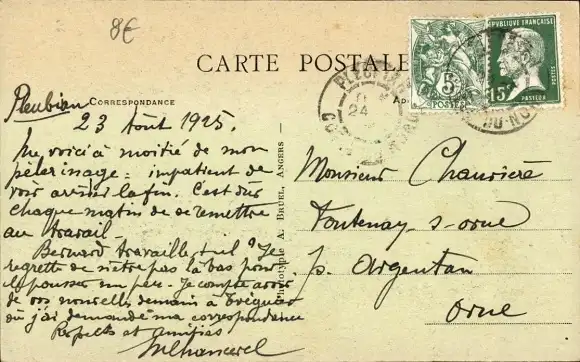 8€
CARTE POSTALE
CORRESPONDANCE
Pleubian
23 Août 1925.
Me voici à moitié de mon
pèlerinage = impatient de
voir arriver la fin. C'est dur
chaque matin de se remettre
au travail —
Bernard travaille-t-il ? Je
regrette de n'être pas là bas pour
le pousser un peu. Je compte avoir
de vos nouvelles demain à Tréguier
où j'ai demandé ma correspondance
Respects et amitiés
Phototypie A. BRUEL, ANGERS
RÉPUBLIQUE FRANÇAISE
5c
POSTES
15c
PASTEUR
POSTES
PLEUBIAN
24
DU-NORD
Monsieur Chauvière
Fontenay-s-orne
p. Argentan
Orne